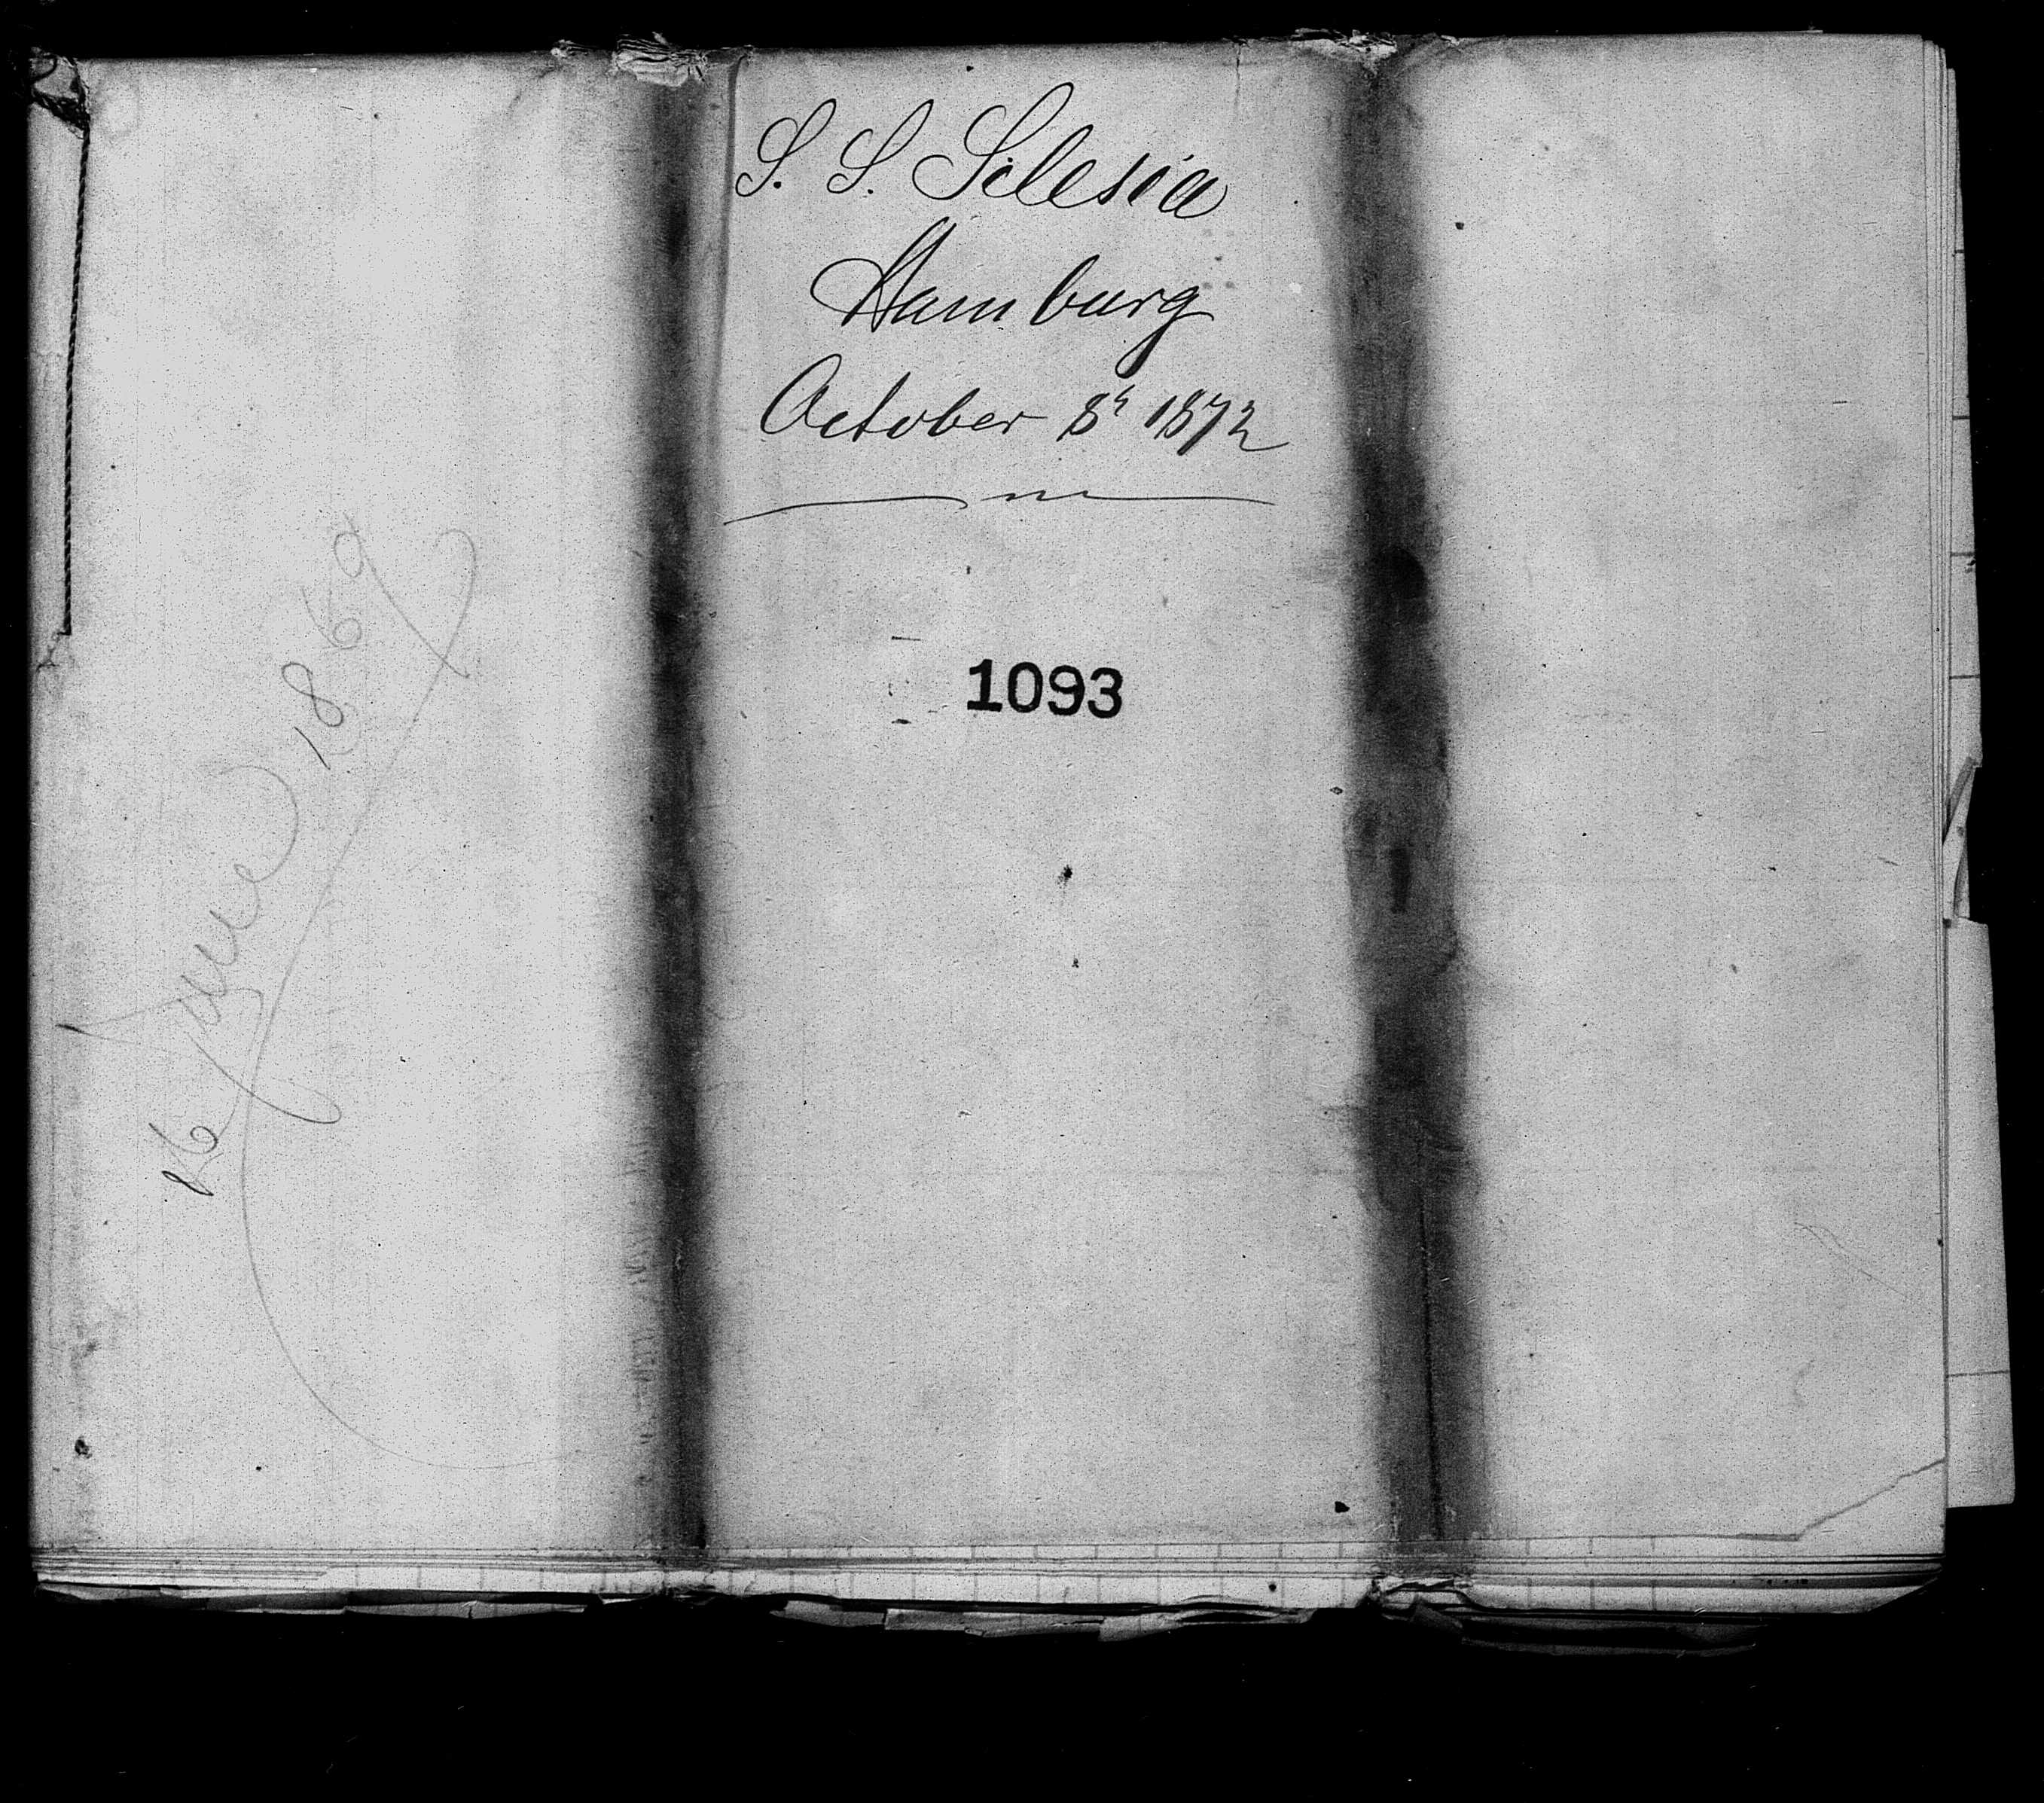 S. S. Silesia
Hamburg
October 8th 1872
1093
16 June 1869